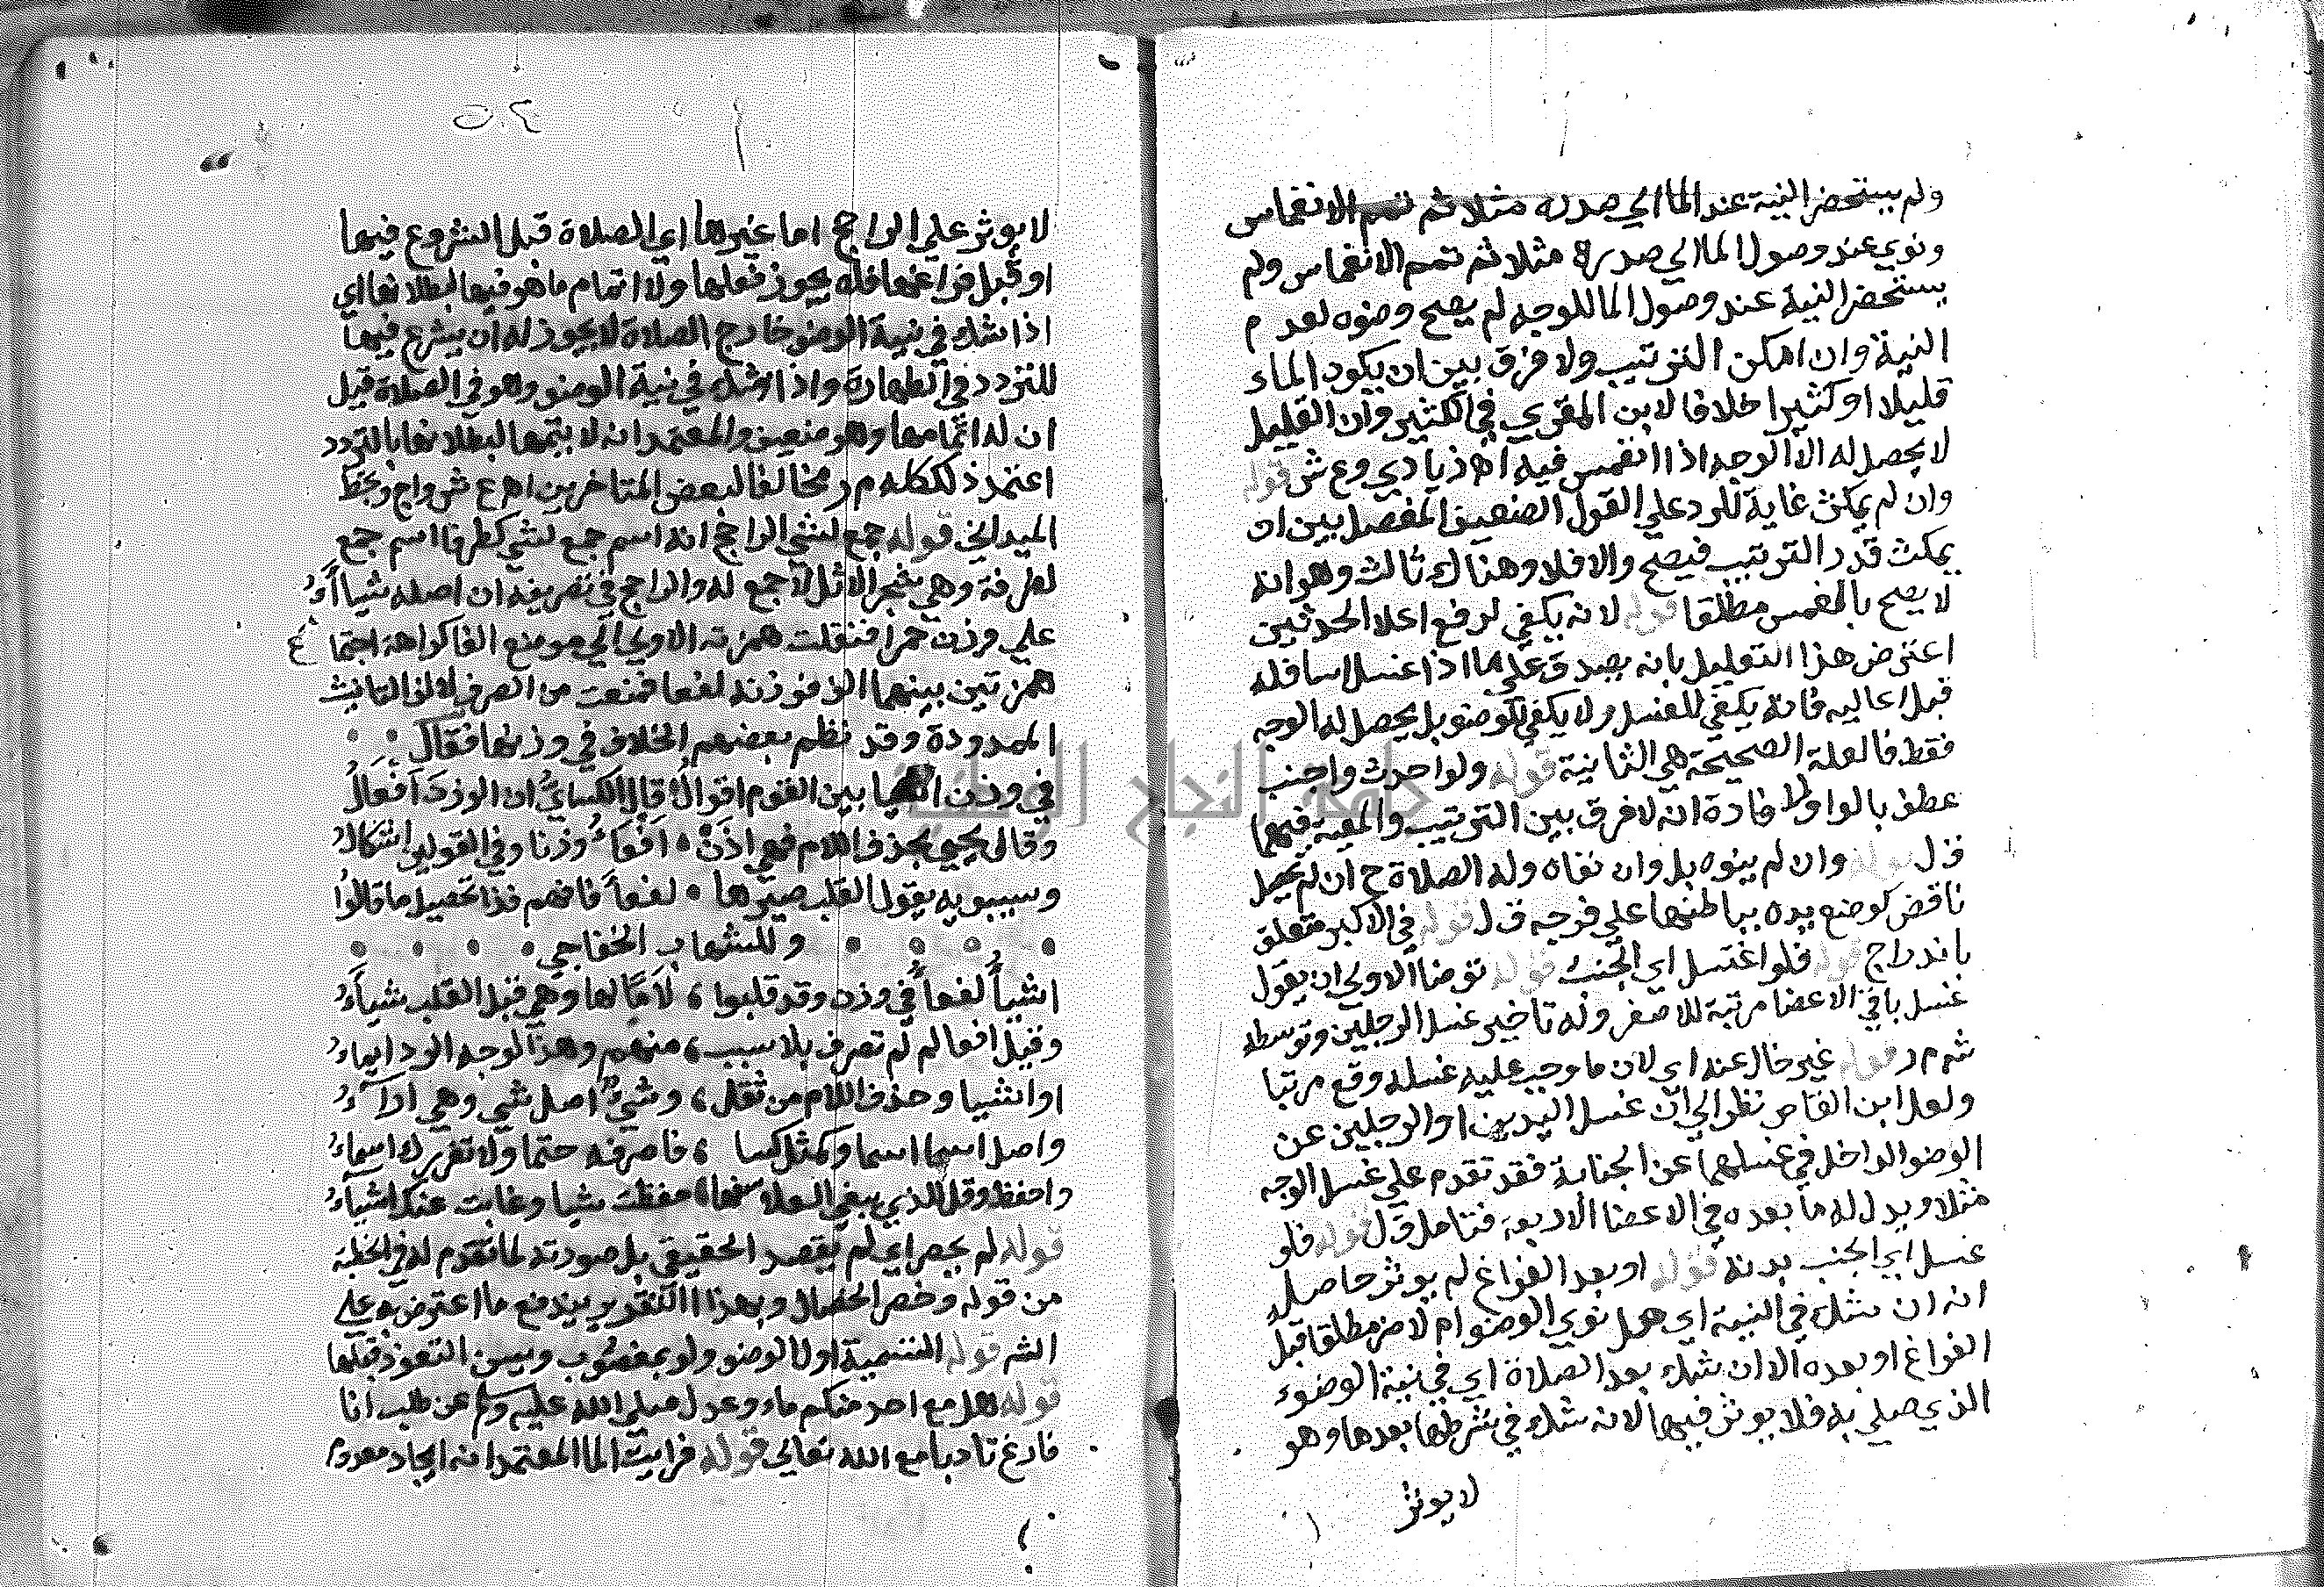 ولم يستحضر النية عند الما الي صدره مثلا ثم تمم الانغماس
ونوي عند وصول الما الي صدره مثلا ثم تمم الانغماس ولم
يستحضر النية عند وصول الما للوجه لم يصح وضوه لعدم
النية وان امكن الترتيب ولا فرق بين ان يكون الماء
قليلا او كثيرا خلافا لابن المقري في الكثير وان القليل
لا يحصل له الا الوجه اذا انغمس فيه اه زيادي وع ش قوله
وان لم يمكث غاية للرد علي القول الضعيف المفصل بين ان
يمكث قدر الترتيب فيصح والا فلا وهناك ثالث وهو انه
لا يصح بالغمس مطلقا قوله لانه يكفي لرفع اعلا الحدثين
اعترض هذا التعليل بانه يصدق علي ما اذا غسل اسافله
قبل اعاليه فانه يكفي للغسل ولا يكفي للوضو بل يحصل له الوجه
فقط فالعلة الصحيحة هي الثانية قوله ولو احدث واجنب
عطف بالواو لافادة انه لا فرق بين الترتيب والمعية فيهما
ق ل قوله وان لم ينوه بل وان نفاه وله الصلاة ح ان لم يحصل
ناقض كوضع يده بباطنها علي فرجه ق ل قوله في الاكبر متعلق
باندراج قوله فلو اغتسل اي الجنب قوله توضا الاولي ان يقول
غسل باقي الاعضا مرتبة للاصغر وله تاخير غسل الرجلين وتوسطه
ش م ر قوله غير خال عنه اي لان ما وجب عليه غسله وقع مرتبا
ولعل ابن القاص نظر الي ان غسل اليدين او الرجلين عن
الوضو الداخل في غسلهما عن الجنابة فقد تقدم علي غسل الوجه
مثلا ويدل له ما بعده في الاعضا الاربعة فتامل ق ل قوله فلو
غسل اي الجنب بدنه قوله او بعد الفراغ لم يوثر حاصله
انه ان شك في النية اي هل نوي الوضو ام لا ضر مطلقا قبل
الفراغ او بعده الا ان شك بعد الصلاة اي في نية الوضوء
الذي صلي به فلا يوثر فيها لانه شك في شرطها بعدها وهو
لا يوثر
لا يوثر علي الراجح اما غيرها اي الصلاة قبل الشروع فيها
او قبل فراغها فله يجوز فعلها ولا اتمام ما هو فيها لبطلانها اي
اذا شك في نية الوضو خارج الصلاة لا يجوز له ان يشرع فيها
للتردد في الطهارة واذا شك في نية الوضو وهو في الصلاة قيل
ان له اتمامها وهو ضعيف والمعتمد انه لا يتمها لبطلانها بالتردد
اعتمد ذلك كله م ر مخالفا لبعض المتاخرين اه ع ش واج وبخط
الميداني قوله جمع لشي الراجح انه اسم جمع لشي كطرفا اسم جمع
لطرفة وهي شجر الاثل لا جمع له والراجح في تصريفه ان اصله شياآء
علي وزن حمرا فنقلت همزته الاولي الي موضع الفا كراهة اجتماع
همزتين بينهما الف فوزنه لفعا فمنعت من الصرف لالف التانيث
الممدودة وقد نظم بعضهم الخلاف في وزنها فقال
في وزن اشيا بين القوم اقوال قال الكسائي ان الوزن افعال
وقال يحيي بحذف اللام فهي اذن افعاء وزنا وفي القولين اشكال
وسيبويه يقول القلب صيرها لفعاء فافهم فذا تحصيل ما قالوا
وللشهاب الخفاجي
اشياء لفعاء في وزن وقد قلبوا لاما لها وهي قبل القلب شيآء
وقيل افعال لم تصرف بلا سبب منهم وهذا لوجه الرد ايماء
او اشييا وحذف اللام من ثقل وشيء اصل شي وهي ارآء
واصل اسما اسما وكمثل كسا فاصرفه حتما ولا تغررك اسماء
واحفظ وقل للذي ينفي العلا سفها حفظت شيا وغابت عنك اشياء
قوله لم يحصر اي لم يقصد الحقيقي بل صورته لما تقدم له في الخطبة
من قوله وخصر الخصال وبهذا التقرير يندفع ما اعترض به علي
الشر قوله التسمية اول الوضو ولو بمغصوب ويسن التعوذ قبلها
قوله هل مع احد منكم ماء وعدل صلي الله عليه وسلم عن طلب انا
فارغ تادبا مع الله تعالي قوله فرايت الما المعتمد انه ايجاد معدوم